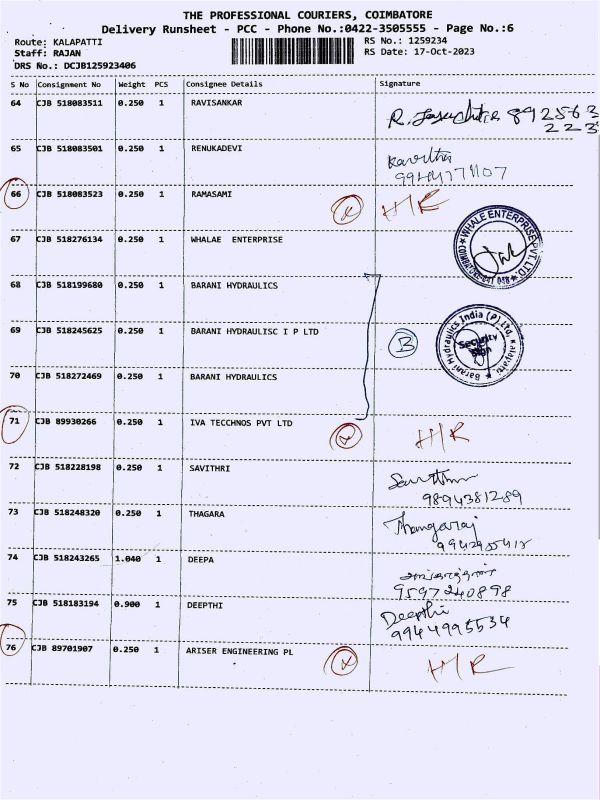 THE PROFESSIONAL COURIERS, COIMBATORE
Delivery Runsheet - PCC - Phone No.:0422-3505555 - Page No.:6
Route: KALAPATTI RS No.: 1259234
Staff: RAJAN RS Date: 17-Oct-2023
DRS No.: DCJB125923406
S No Consignment No Weight PCS Consignee Details Signature
64 CJB 518083511 0.250 1 RAVISANKAR R. 892563
223
65 CJB 518083501 0.250 1 RENUKADEVI Kavitha
9944771107
66 CJB 518083523 0.250 1 RAMASAMI H/R
67 CJB 518276134 0.250 1 WHALAE ENTERPRISE WHALE ENTERPRISE PVT. LTD.
68 CJB 518199680 0.250 1 BARANI HYDRAULICS
69 CJB 518245625 0.250 1 BARANI HYDRAULISC I P LTD B Barani Hydraulics India (P) Ltd, Kalapatti. Security Sign
70 CJB 518272469 0.250 1 BARANI HYDRAULICS
71 CJB 89930266 0.250 1 IVA TECCHNOS PVT LTD H/R
72 CJB 518228198 0.250 1 SAVITHRI
9894381289
73 CJB 518248320 0.250 1 THAGARA Thangaraj
74 CJB 518243265 1.040 1 DEEPA
9597240898
75 CJB 518183194 0.900 1 DEEPTHI Deepthi
9944995534
76 CJB 89701907 0.250 1 ARISER ENGINEERING PL H/R